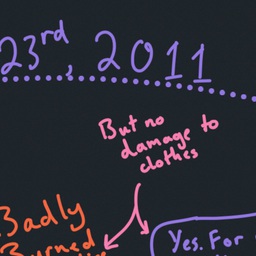 23rd, 2011
But no
damage to
clothes
Badly
Burned
Yes. For